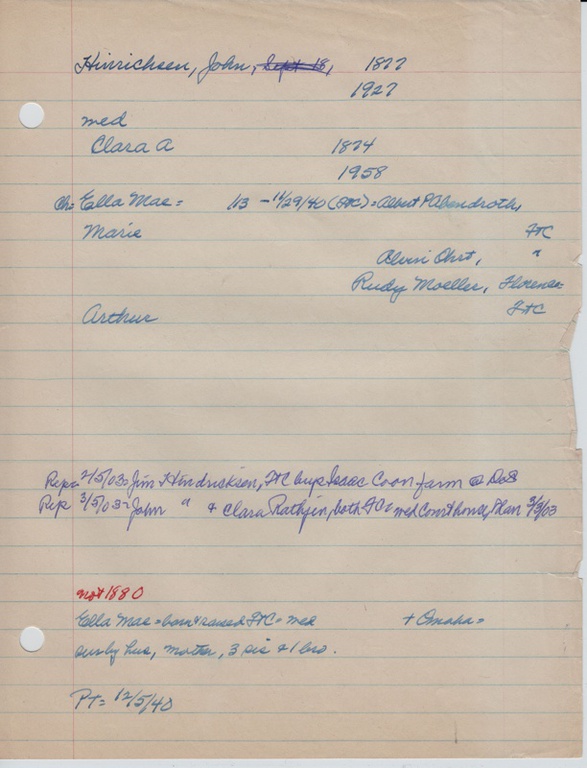 Hinrichsen, John, Sept 18, 1877
1927
med
Clara A 1874
1958
Ch= Ella Mae= 1/3 - 11/29/40 (FtC) = Albert P Abendroth,
Marie FtC
Alvin Ohrt, "
Rudy Moeller, Florence=
Arthur FtC
Rep= 2/5/03= Jim Hindricksen, FtC buys Isaac Coon farm @ DeS
Rep 3/5/03= John " & Clara Rathjen, both FtC= med Court house, 3/3/03
not 1880
Ella Mae= born & raised FtC= med + Omaha=
surv by hus, mother, 3 sis & 1 bro.
PT= 12/5/40